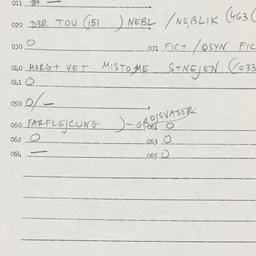 020 D3R TOU (151 ) NEBL / NEBLIK (463 (
030 O 031 FICT / QSYN FIC
040 MORG+ VET MISTOME S+NEJEN (1033
041 O
050 O/—
060 FARFLEJCUNG )—GROJSVASER
061 O
062 O 063 O
064 — 065 O